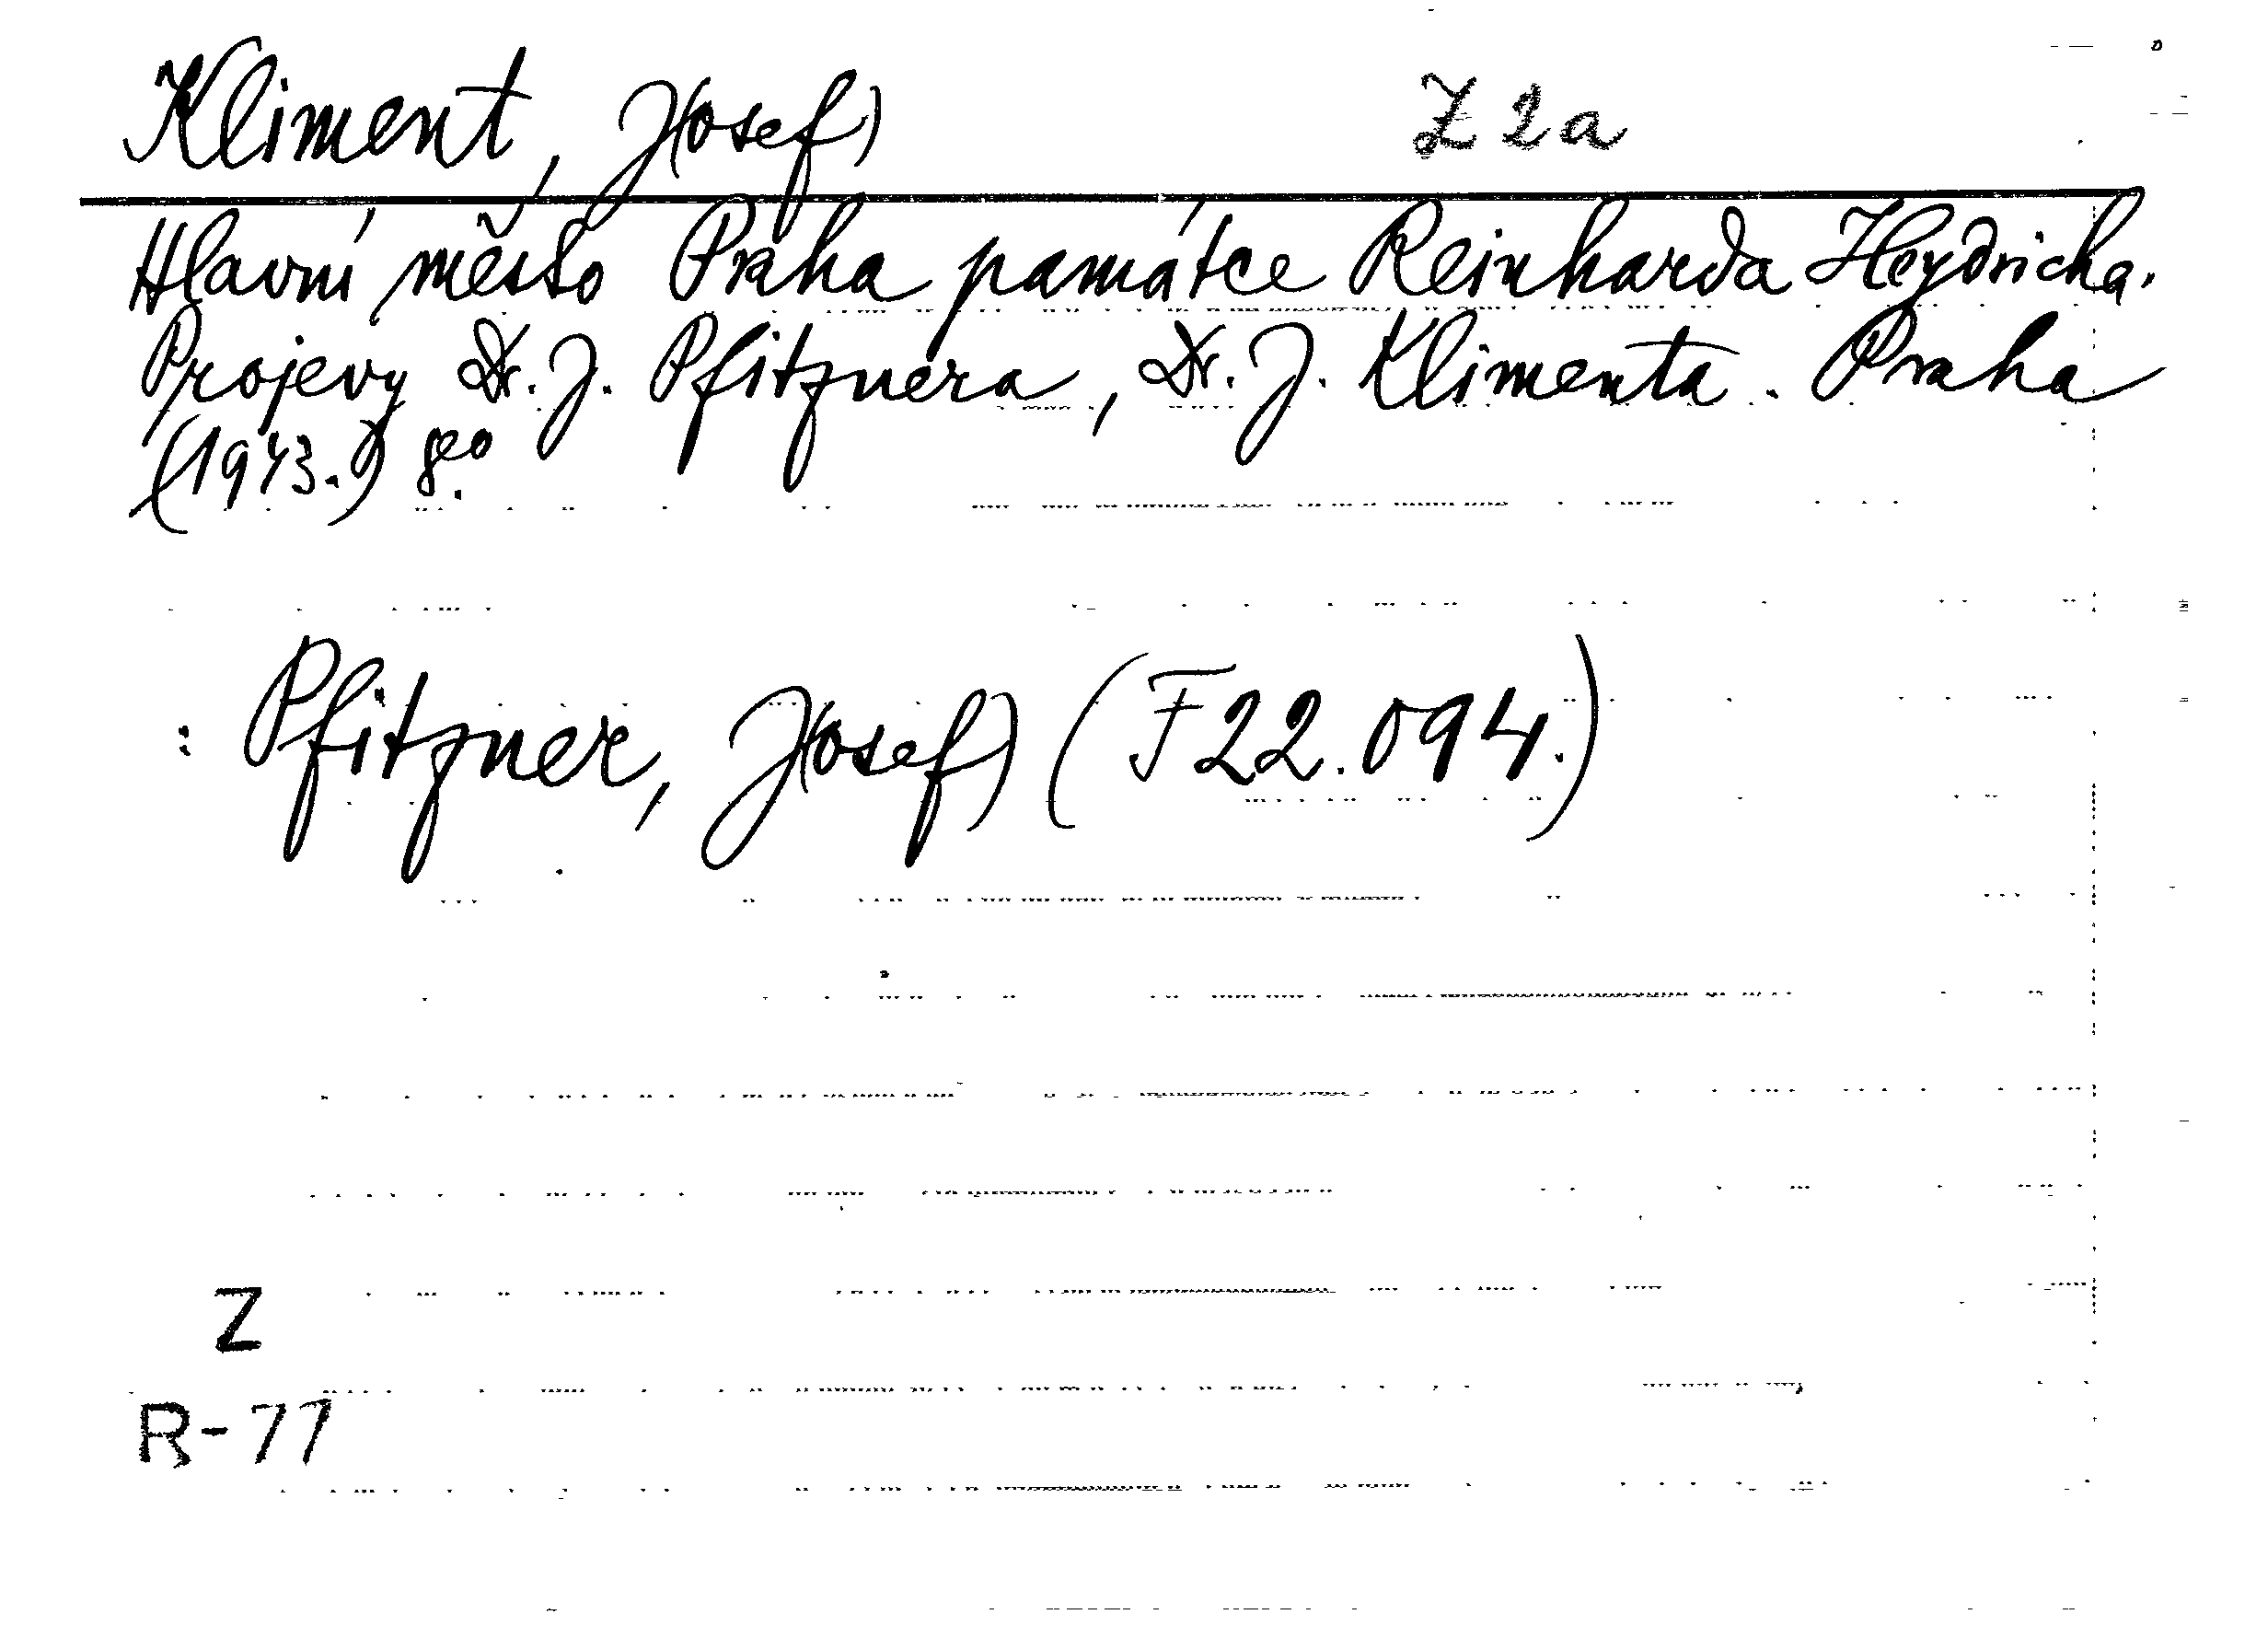 Kliment, J(osef) Z 2a
Hlavní město Praha památce Reinharda Heydricha.
Projevy Dr. J. Pfitznera, Dr. J. Klimenta. Praha
(1943.) 8°.
: Pfitzner, J(osef) (F 22.094.)
Z
R-77